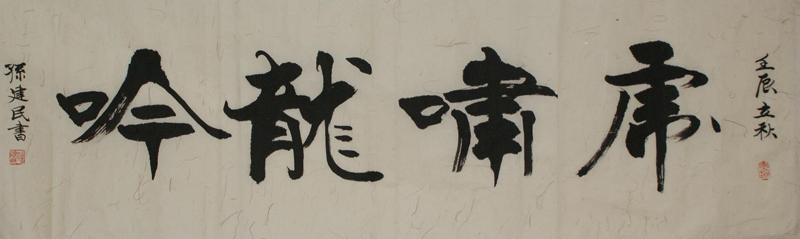 壬辰立秋
虎啸龍吟
孫建民書